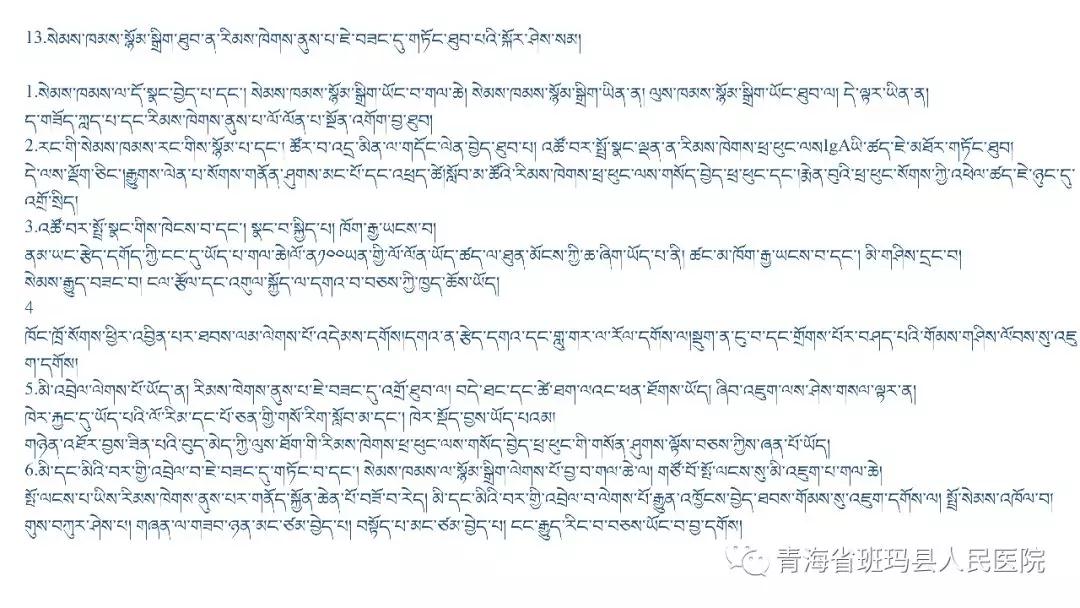 13.སེམས་ཁམས་སྙོམ་སྒྲིག་ཐུབ་ན་རིམས་ཁེགས་ནུས་པ་ཇེ་བཟང་དུ་གཏོང་ཐུབ་པའི་སྐོར་ཤེས་སམ།
1.སེམས་ཁམས་ལ་དོ་སྣང་བྱེད་པ་དང་། སེམས་ཁམས་སྙོམ་སྒྲིག་ཡོང་བ་གལ་ཆེ། སེམས་ཁམས་སྙོམ་སྒྲིག་ཡིན་ན། ལུས་ཁམས་སྙོམ་སྒྲིག་ཡོང་ཐུབ་ལ། དེ་ལྟར་ཡིན་ན།
ད་གཟོད་ཀླད་པ་དང་རིམས་ཁེགས་ནུས་པ་ལོ་ལོན་པ་སྔོན་འགོག་བྱ་ཐུབ།
2.རང་གི་སེམས་ཁམས་རང་གིས་སྙོམ་པ་དང་། ཚོར་བ་འདྲ་མིན་ལ་གདོང་ལེན་བྱེད་ཐུབ་པ། འཚོ་བར་སྤྲོ་སྣང་ལྡན་ན་རིམས་ཁེགས་ཕྲ་ཕུང་ལསlgAཡི་ཚད་ཇེ་མཐོར་གཏོང་ཐུབ།
དེ་ལས་ལྡོག་ཅིང་།རྒྱུགས་ལེན་པ་སོགས་གནོན་ཤུགས་མང་པོ་དང་འཕྲད་ཚེ།སློབ་མ་ཚོའི་རིམས་ཁེགས་ཕྲ་ཕུང་ལས་གསོད་བྱེད་ཕྲ་ཕུང་དང་།རྨེན་བུའི་ཕྲ་ཕུང་སོགས་ཀྱི་འཕེལ་ཚད་ཇེ་ཉུང་དུ་
འགྲོ་སྲིད།
3.འཚོ་བར་སྤྲོ་སྣང་གིས་ཁེངས་བ་དང་། སྣང་བ་སྐྱིད་པ། ཁོག་རྒྱ་ཡངས་བ།
ནམ་ཡང་རྩེད་དགོད་ཀྱི་ངང་དུ་ཡོད་པ་གལ་ཆེ།ལོ་ན༡༠༠ཡན་གྱི་ལོ་ལོན་ཡོད་ཚད་ལ་ཐུན་མོངས་ཀྱི་ཆ་ཞིག་ཡོད་པ་ནི། ཚང་མ་ཁོག་རྒྱ་ཡངས་བ་དང་། མི་གཤིས་དྲང་བ།
སེམས་རྒྱུད་བཟང་བ། ངལ་རྩོལ་དང་འགུལ་སྐྱོད་ལ་དགའ་བ་བཅས་ཀྱི་ཁྱད་ཆོས་ཡོད།
4
ཁོང་ཁྲོ་སོགས་ཕྱིར་འབྱིན་པར་ཐབས་ལམ་ལེགས་པོ་འདེམས་དགོས།དགའ་ན་རྩེད་དགའ་དང་གླུ་གར་ལ་རོལ་དགོས་ལ།སྡུག་ན་ངུ་བ་དང་གྲོགས་པོར་བཤད་པའི་གོམས་གཤིས་ལོབས་སུ་འཇུ
ག་དགོས།
5.མི་འབྲེལ་ལེགས་པོ་ཡོད་ན། རིམས་ཁེགས་ནུས་པ་ཇེ་བཟང་དུ་འགྲོ་ཐུབ་ལ། བདེ་ཐང་དང་ཚེ་ཐག་ལའང་ཕན་ཐོགས་ཡོད། ཞིབ་འཇུག་ལས་ཤེས་གསལ་ལྟར་ན།
ཁེར་རྐྱང་དུ་ཡོད་པའི་ལོ་རིམ་དང་པོ་ཅན་གྱི་གསོ་རིག་སློབ་མ་དང་། ཁེར་སྡོད་བྱས་ཡོད་པའམ།
གཉེན་འཐོར་བྱས་ཟིན་པའི་བུད་མེད་ཀྱི་ལུས་ཐོག་གི་རིམས་ཁེགས་ཕྲ་ཕུང་ལས་གསོད་བྱེད་ཕྲ་ཕུང་གི་གསོན་ཤུགས་ལྟོས་བཅས་ཀྱིས་ཞན་པོ་ཡོད།
6.མི་དང་མིའི་བར་གྱི་འབྲེལ་བ་ཇེ་བཟང་དུ་གཏོང་བ་དང་། སེམས་ཁམས་ལ་སྙོམ་སྒྲིག་ལེགས་པོ་བྱ་བ་གལ་ཆེ་ལ། གཙོ་བོ་སྤོ་ལངས་སུ་མི་འཇུག་པ་གལ་ཆེ།
སྤོ་ལངས་པ་ཡིས་རིམས་ཁེགས་ནུས་པར་གནོད་སྐྱོན་ཆེན་པོ་བཟོ་བ་རེད། མི་དང་མིའི་བར་གྱི་འབྲེལ་བ་ལེགས་པོ་རྒྱུན་འཁྱོངས་བྱེད་ཐབས་གོམས་སུ་འཇུག་དགོས་ལ། སྤྲོ་སེམས་འཁོལ་བ།
གུས་བཀུར་ཤེས་པ། གཞན་ལ་གཟབ་ཉན་མང་ཙམ་བྱེད་པ། བསྟོད་པ་མང་ཙམ་བྱེད་པ། ངང་རྒྱུད་རིང་བ་བཅས་ཡོང་བ་བྱ་དགོས།
青海省班玛县人民医院